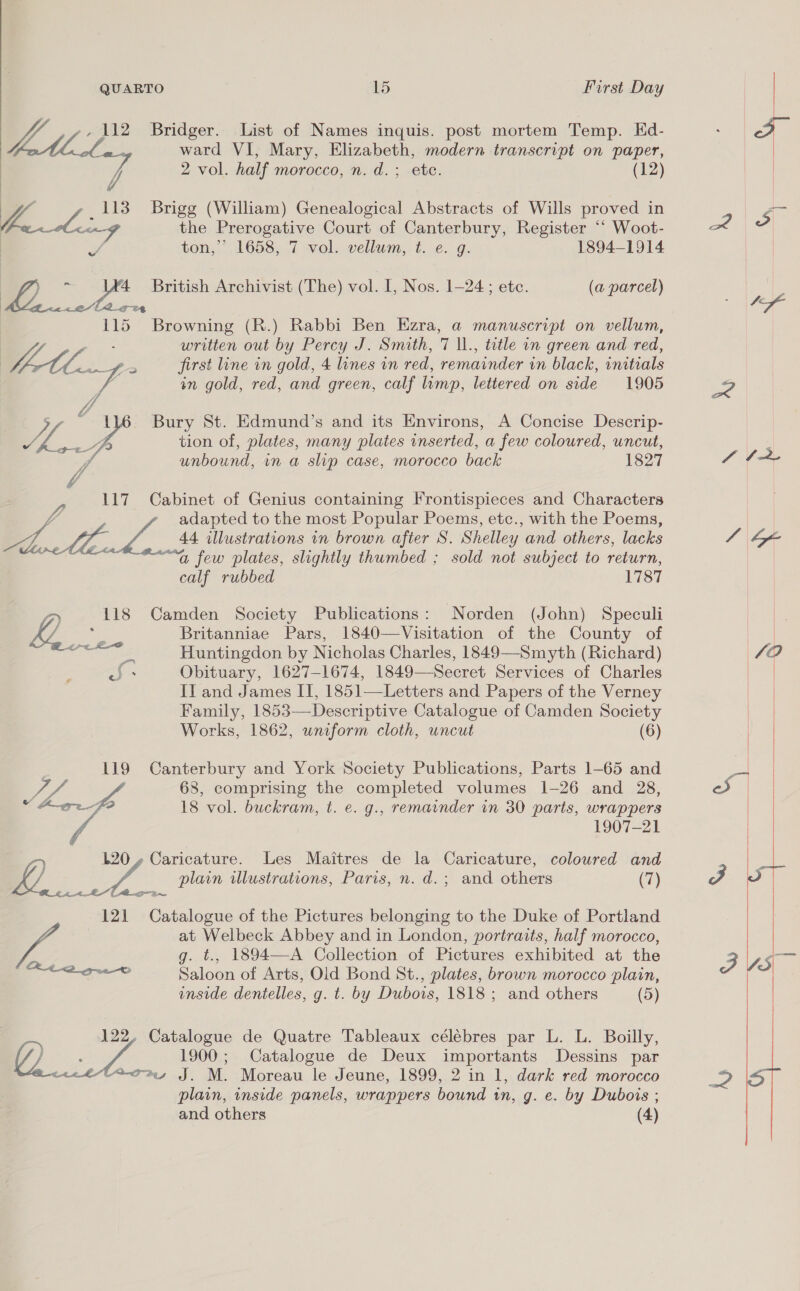 QUARTO 15 First Day
112 Bridger. List of Names inquis. post mortem Temp. Ed-
ward VI, Mary, Elizabeth, modern transcript on paper,
2 vol. half morocco, n. d. ; etc. (12)
113 Brigg (William) Genealogical Abstracts of Wills proved in
the Prerogative Court of Canterbury, Register “ Woot-
ton,” 1658, 7 vol. vellum, t. e. g. 1894–1914
114 British Archivist (The) vol. I, Nos. 1–24 ; etc. (a parcel)
115 Browning (R.) Rabbi Ben Ezra, a manuscript on vellum,
written out by Percy J. Smith, 7 ll., title in green and red,
first line in gold, 4 lines in red, remainder in black, initials
in gold, red, and green, calf limp, lettered on side 1905
116 Bury St. Edmund’s and its Environs, A Concise Descrip-
tion of, plates, many plates inserted, a few coloured, uncut,
unbound, in a slip case, morocco back 1827
117 Cabinet of Genius containing Frontispieces and Characters
adapted to the most Popular Poems, etc., with the Poems,
44 illustrations in brown after S. Shelley and others, lacks
a few plates, slightly thumbed ; sold not subject to return,
calf rubbed 1787
118 Camden Society Publications : Norden (John) Speculi
Britanniae Pars, 1840—Visitation of the County of
Huntingdon by Nicholas Charles, 1849—Smyth (Richard)
Obituary, 1627–1674, 1849—Secret Services of Charles
II and James II, 1851—Letters and Papers of the Verney
Family, 1853—Descriptive Catalogue of Camden Society
Works, 1862, uniform cloth, uncut (6)
119 Canterbury and York Society Publications, Parts 1–65 and
68, comprising the completed volumes 1–26 and 28,
18 vol. buckram, t. e. g., remainder in 30 parts, wrappers
1907–21
120 Caricature. Les Maitres de la Caricature, coloured and
plain illustrations, Paris, n. d. ; and others (7)
121 Catalogue of the Pictures belonging to the Duke of Portland
at Welbeck Abbey and in London, portraits, half morocco,
g. t., 1894—A Collection of Pictures exhibited at the
Saloon of Arts, Old Bond St., plates, brown morocco plain,
inside dentelles, g. t. by Dubois, 1818 ; and others (5)
122 Catalogue de Quatre Tableaux célèbres par L. L. Boilly,
1900 ; Catalogue de Deux importants Dessins par
J. M. Moreau le Jeune, 1899, 2 in 1, dark red morocco
plain, inside panels, wrappers bound in, g. e. by Dubois ;
and others (4)